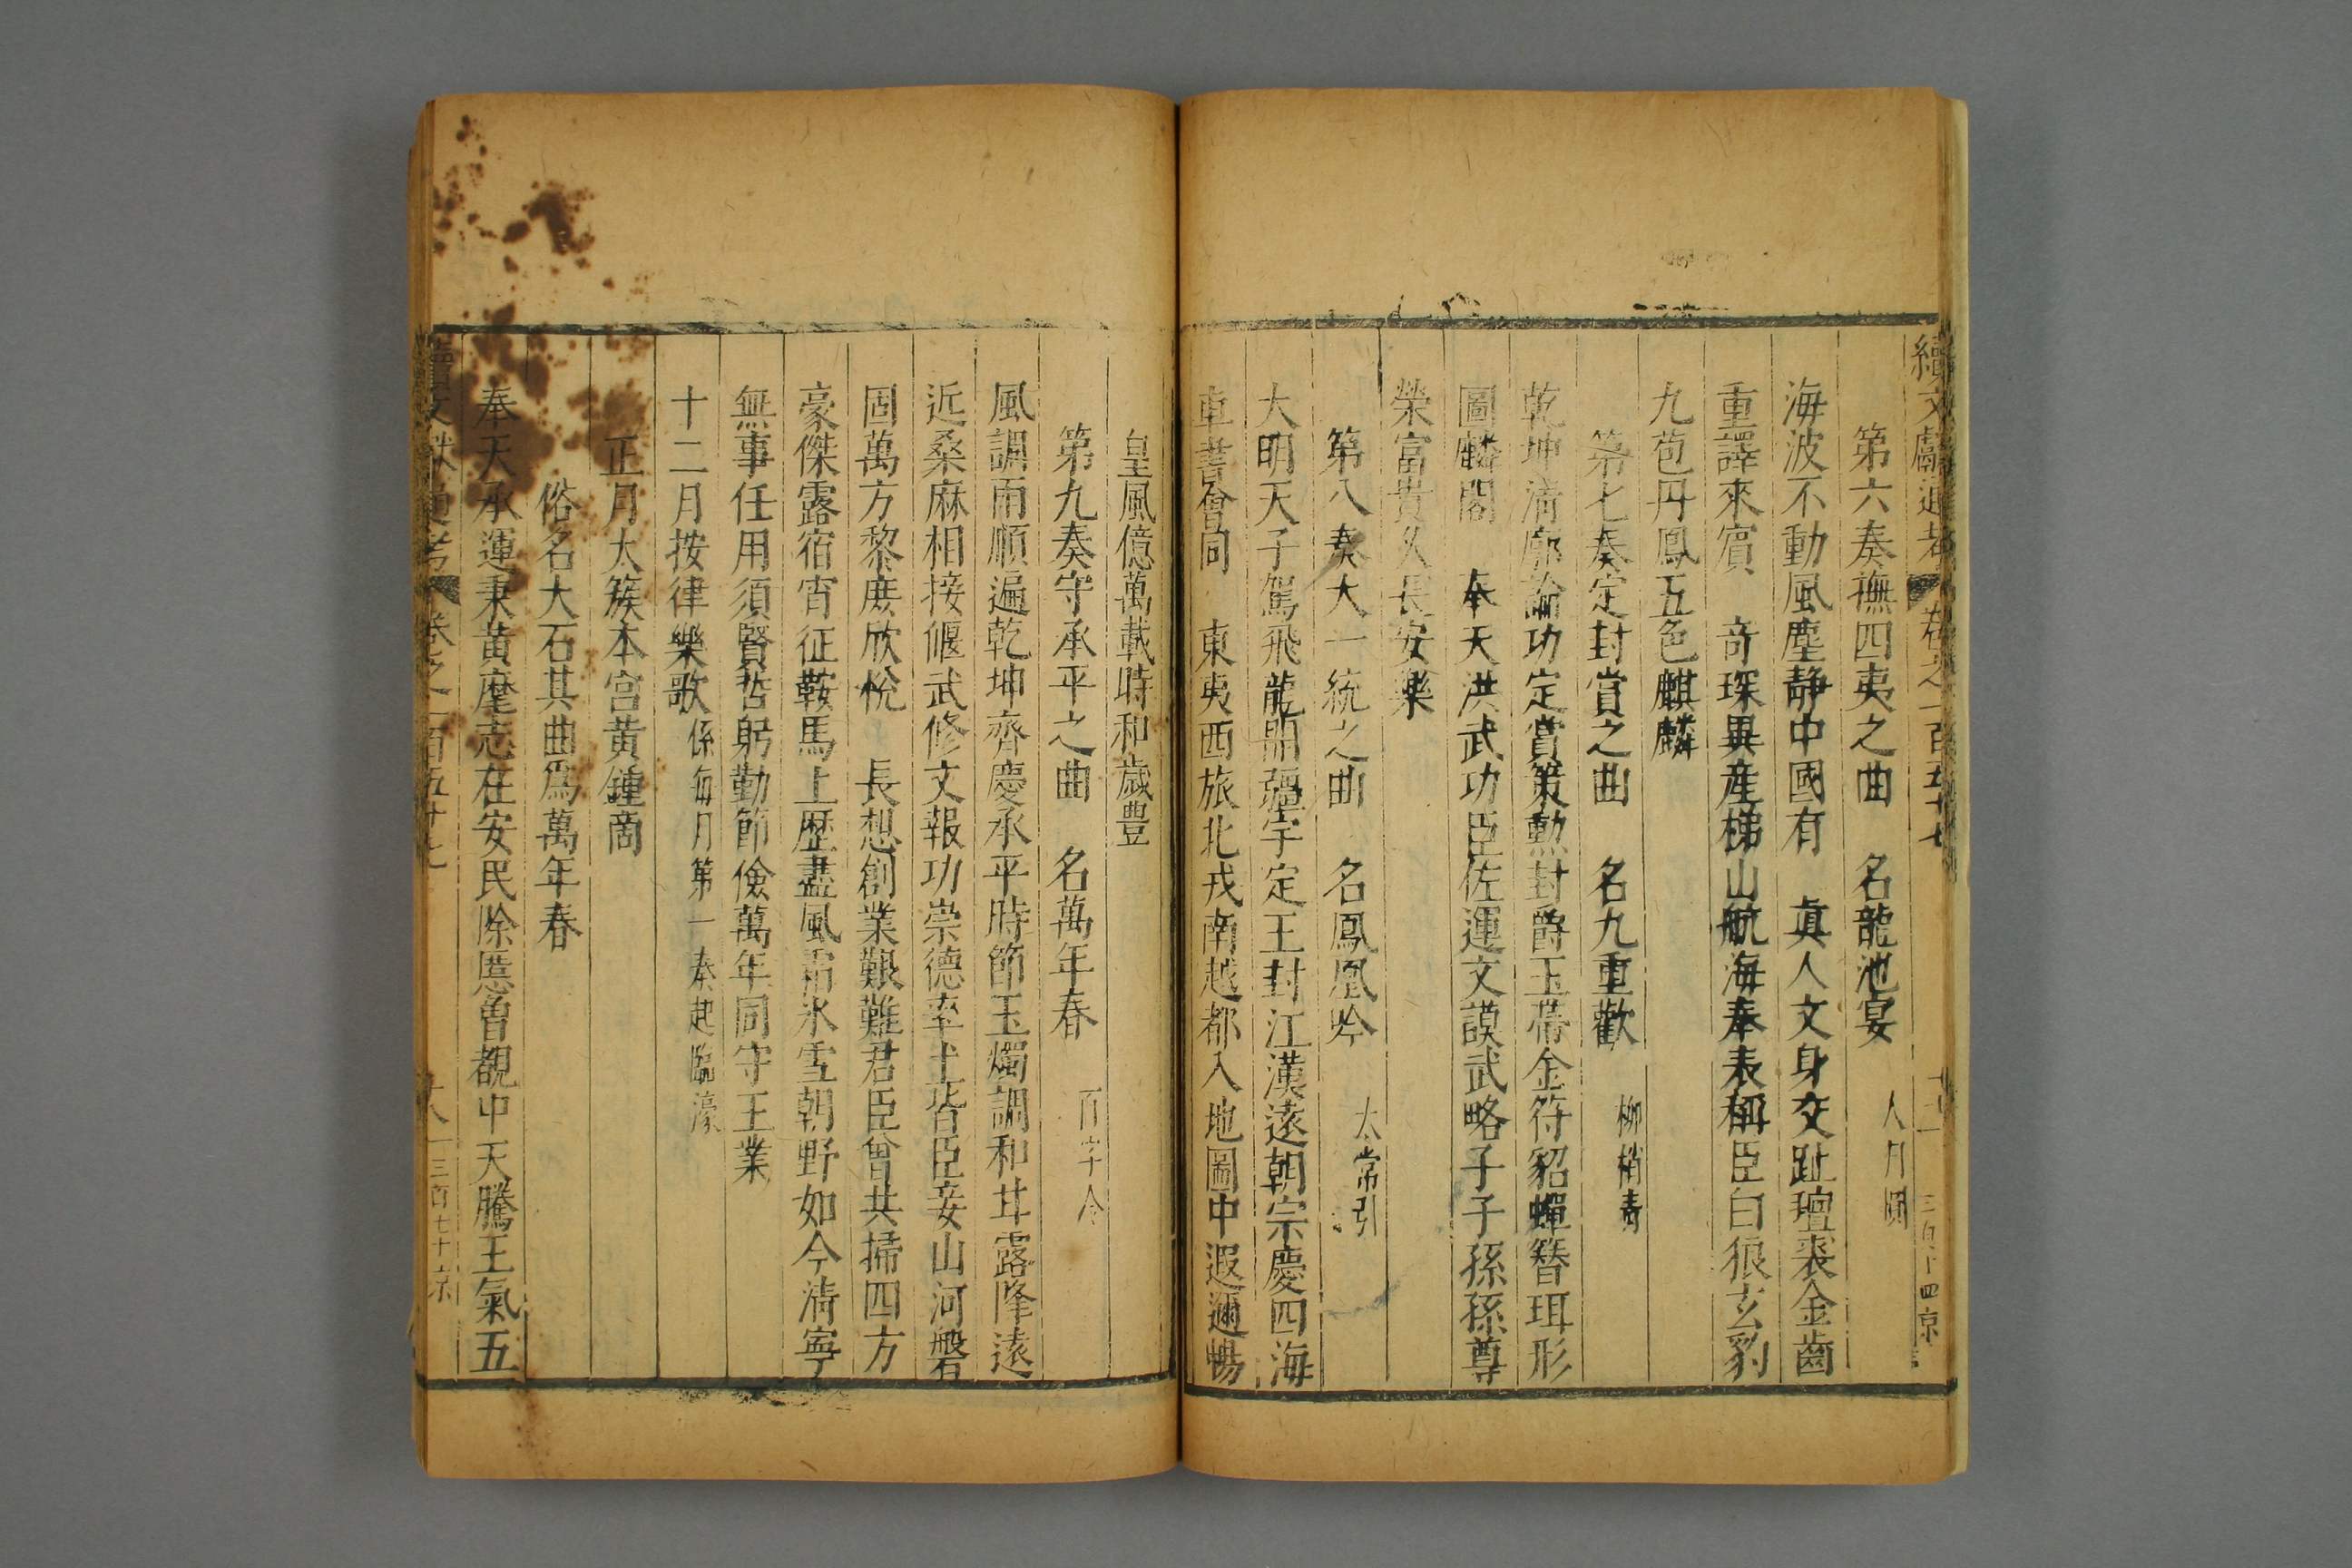 續文獻通考 卷之一百五十七
第六奏撫四夷之曲 名龍池宴 人月圓
海波不動風塵靜中國有 眞人文身交趾氊裘金齒
重譯來賓 竒琛異産梯山航海奉表稱臣白狼玄豹
九苞丹鳳五色麒麟
第七奏定封賞之曲 名九重歡 柳梢青
乾坤清廓論功定賞策勲封爵玉帶金符貂蟬簪珥形
圖麟閣 奉天洪武功臣佐運文謨武略子子孫孫尊
榮富貴久長安樂
第八奏大一統之曲 名鳳凰吟 太常引
大明天子駕飛龍開疆宇定王封江漢遠朝宗慶四海
車書會同 東夷西旅北戎南越都入地圖中遐邇暢
皇風億萬載時和歲豊
第九奏守承平之曲 名萬年春 百字令
風調雨順遍乾坤齊慶承平時節玉燭調和甘露降遠
近桑麻相接偃武修文報功崇德率土皆臣妾山河磐
固萬方黎庶欣悅 長想創業艱難君臣曾共掃四方
豪傑露宿宵征鞍馬上歷盡風霜氷雪朝野如今清寧
無事任用須賢哲躬勤節儉萬年同守王業
十二月按律樂歌 係每月第一奏起臨濠
正月太簇本宮黃鍾商
俗名大石其曲爲萬年春
奉天承運秉黃麾志在安民除慝曽覩中天騰王氣五
續文獻通考 卷之一百五十七 十八 三百七十六